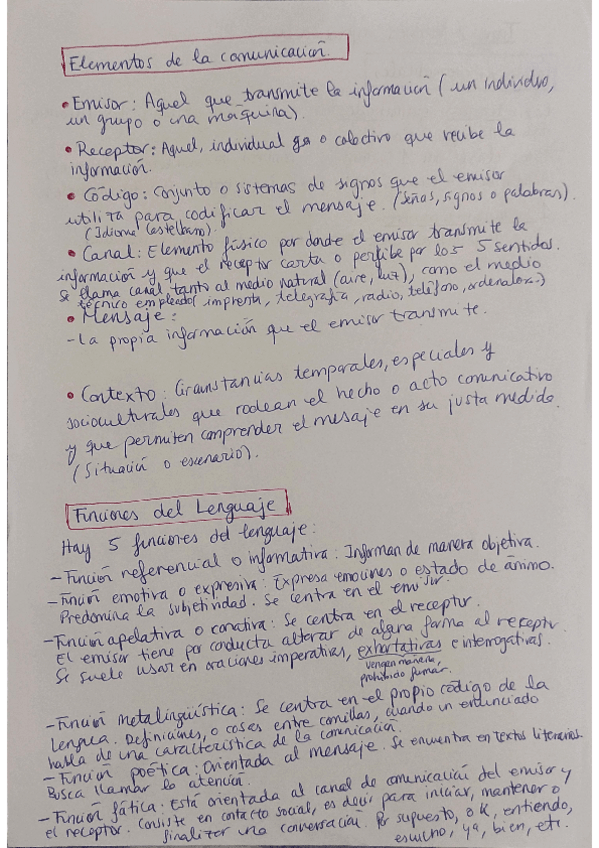 Elementos de la comunicación.
• Emisor: Aquel que transmite la información (un individuo,
un grupo o una maquina).
• Receptor: Aquel, individual o colectivo que recibe la
información.
• Código: Conjunto o sistemas de signos que el emisor
utiliza para codificar el mensaje. (Señas, signos o palabras).
(Idioma Castellano).
• Canal: Elemento físico por donde el emisor transmite la
información y que el receptor capta o perfibe por los 5 sentidos.
Se llama canal, tanto al medio natural (aire, luz), como el medio
técnico empleado( imprenta, telegrafía, radio, teléfono, ordenador..)
• Mensaje:
- La propia información que el emisor transmite.
• Contexto: Circunstancias temporales, especiales y
socioculturales que rodean el hecho o acto comunicativo
y que permiten comprender el mesaje en su justa medida.
(Situación o escenario).
Funciones del Lenguaje
Hay 5 funciones del lenguaje:
- Función referencial o informativa: Informan de manera objetiva.
- Función emotiva o expresiva: Expresa emociones o estado de ánimo.
Predomina la subjetividad. Se centra en el emisor.
- Función apelativa o conativa: Se centra en el receptor.
El emisor tiene por conducta alterar de alguna forma al receptor.
Se suele usar en oraciones imperativas, exhortativas e interrogativas.
vengan mañana,
prohibido fumar.
- Función metalingüística: Se centra en el propio código de la
lengua. Definiciones, o cosas entre comillas, cuando un enunciado
habla de una característica de la comunicación.
- Función poética: Orientada al mensaje. Se encuentra en textos literarios.
Busca llamar la atención.
- Función fática: Está orientada al canal de comunicación del emisor y
el receptor. Consiste en contacto social, es decir para iniciar, mantener o
finalizar una conversación. Por supuesto, ok, entiendo,
escucho, ya, bien, etc.